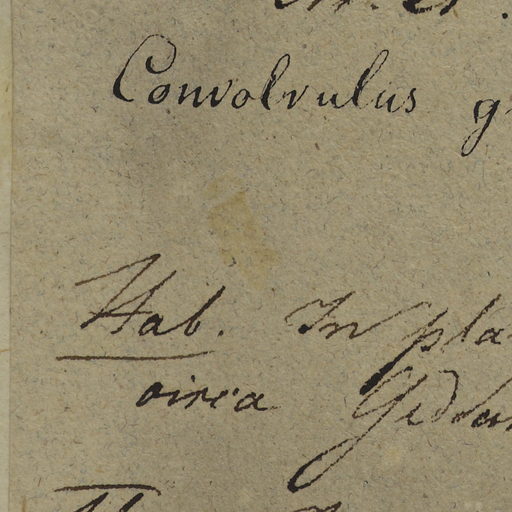 Convolvulus g
Hab. In pla
circa Gedan